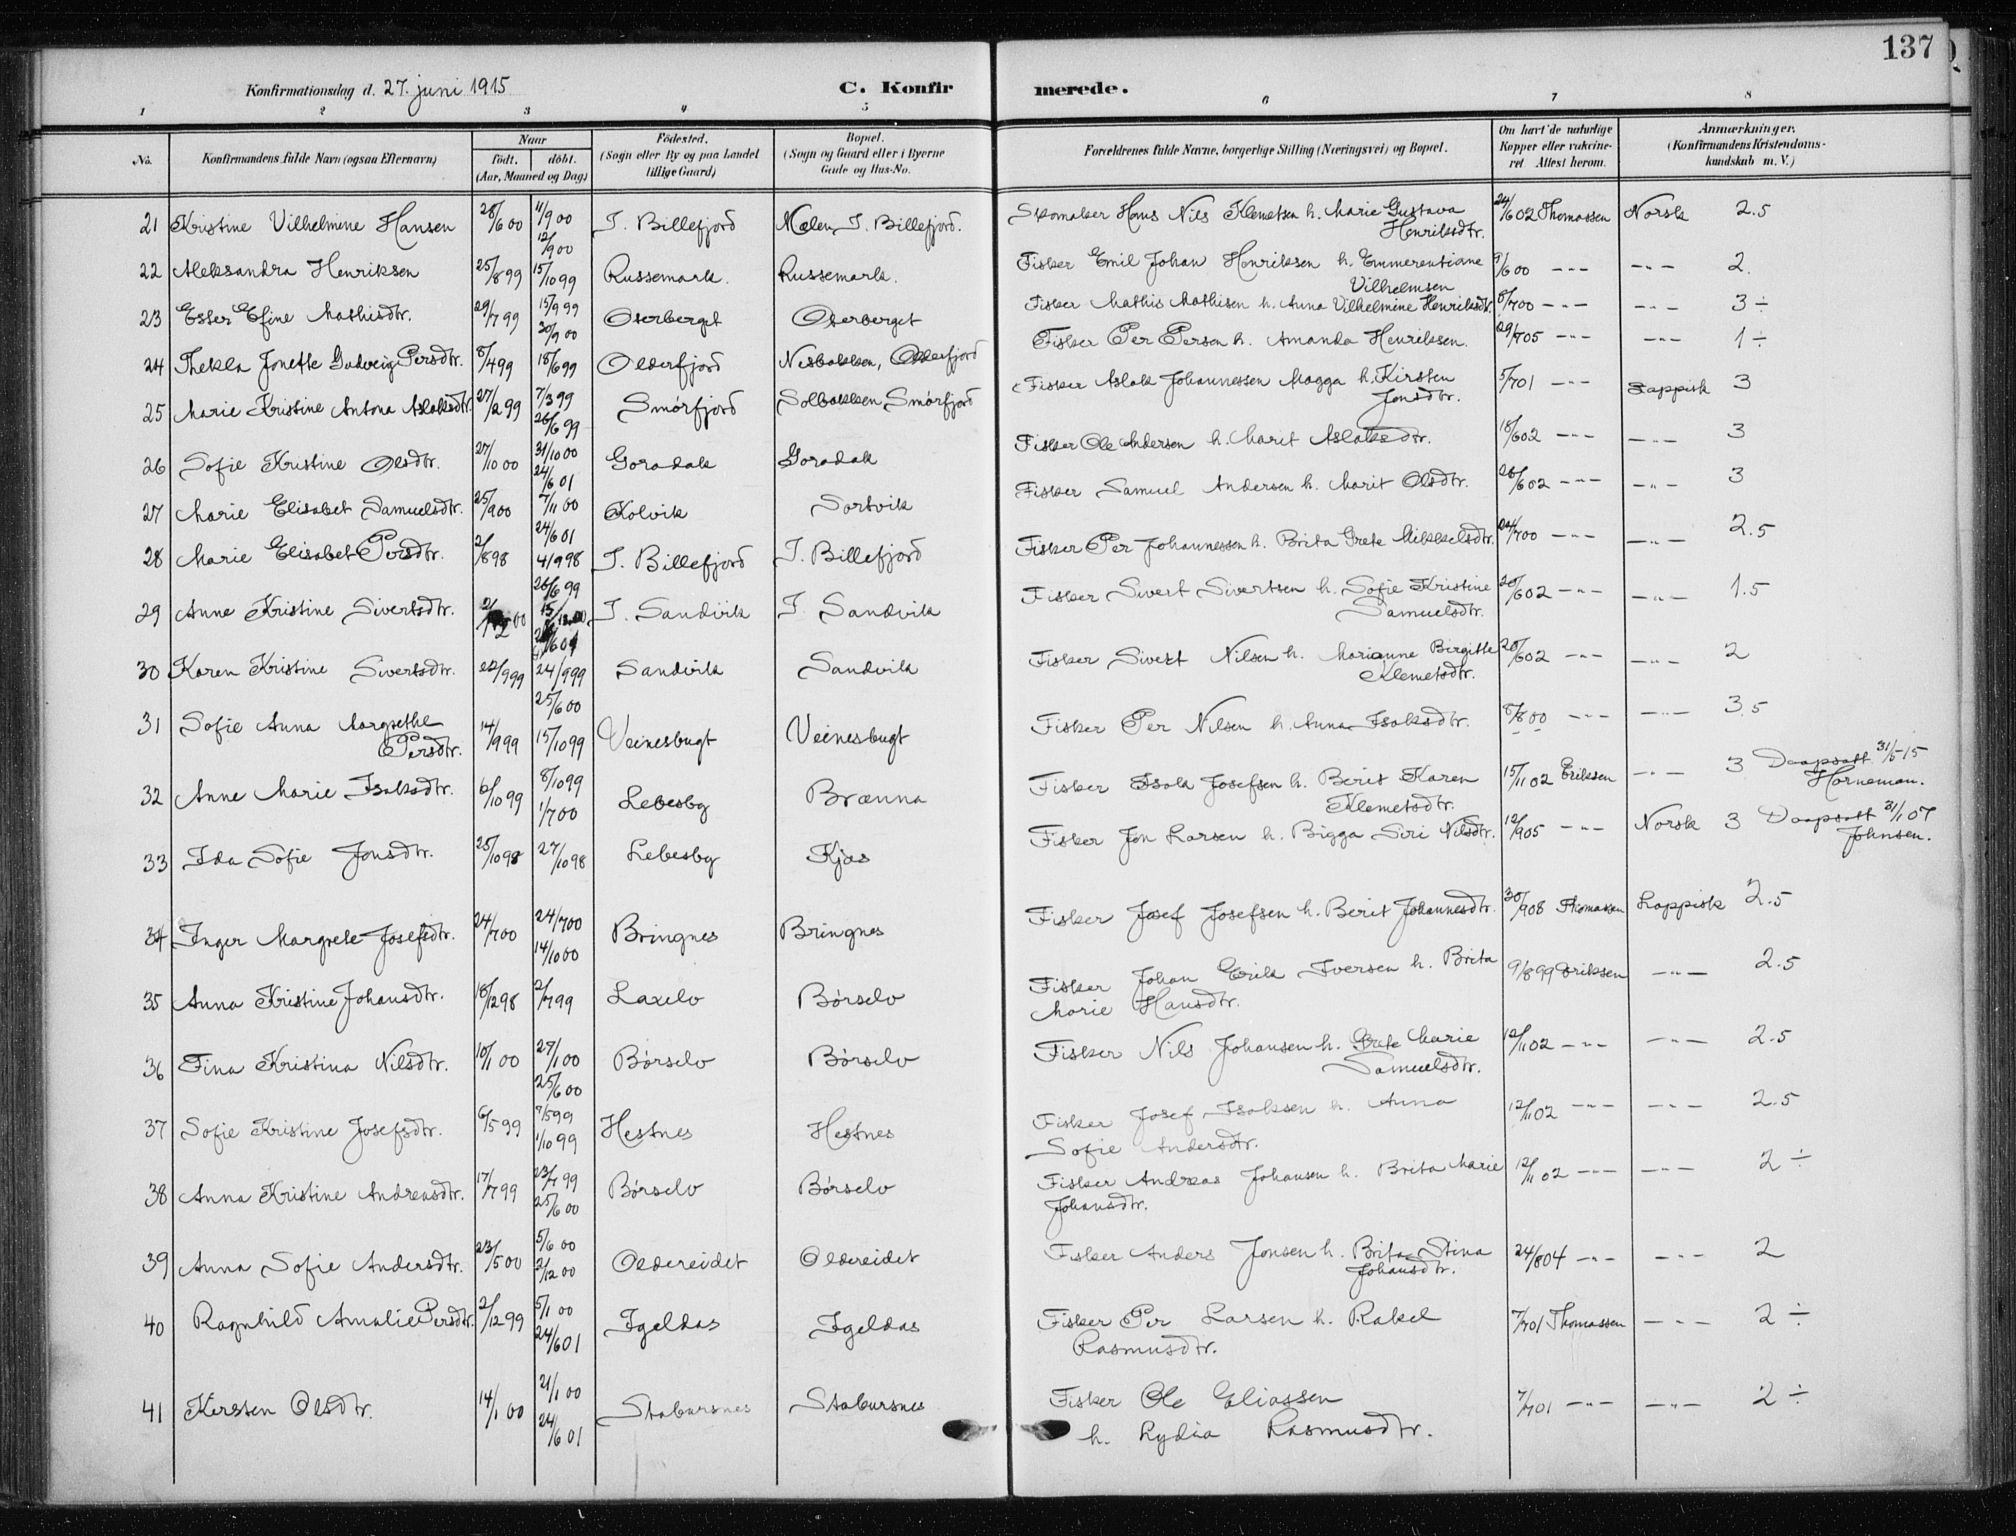 137
Konfirmationsdag d. 27. juni 1915
C. Konfirmerede.
1 2 3 4 5 6 7 8
No. Konfirmandens fulde Navn (ogsaa Efternavn) Naar født. døbt. (Aar, Maaned og Dag) Fødested. (Sogn eller By og paa Landet tillige Gaard) Bopæl. (Sogn og Gaard eller i Byerne Gade og Hus-No. Forældrenes fulde Navne, borgerlige Stilling (Næringsvei) og Bopæl. Om havt de naturlige Kopper eller vaccineret Attest herom. Anmærkninger. (Konfirmandens Kristendomskundskab m. V.)
21 Kristine Vilhelmine Hansen 28/6 00 11/9 00 12/9 00 I. Billefjord Mælen, I. Billefjord. Skomaker Hans Nils Klemetsen h. Marie Gustava Henriksdtr. 24/6 02 Thomassen Norsk 2.5
22 Aleksandra Henriksen 25/8 99 15/10 99 Russemark. Russemark. Fisker Emil Johan Henriksen h. Emmerentiane Vilhelmsen 9/6 00 -"- -"- 2.
23 Ester Efine Mathisdtr. 29/7 99 15/9 99 30/9 00 Oterberget Oterberget Fisker Mathis Mathisen h. Anna Vilhelmine Henriksdtr. 8/7 00 -"- -"- 3 ÷
24 Thekla Jonette Gudveig Persdtr. 8/4 99 18/6 99 Olderfjord Nesbakken, Olderfjord Fisker Per Persen h. Amanda Henriksen. 29/7 05 -"- -"- 1 ÷
25 Marie Kristine Antona Aslaksdtr. 27/2 99 7/3 99 26/6 99 Smørfjord Solbakken, Smørfjord Fisker Aslak Johannessen Magga h. Kirsten Jonsdtr. 5/7 01 -"- Lappisk 3
26 Sofie Kristine Olsdtr. 27/10 00 31/10 00 24/6 01 Goradak Goradak Fisker Ole Andersen h. Marit Aslaksdtr. 18/6 02 -"- -"- 3
27 Marie Elisabet Samuelsdtr. 25/9 00 7/11 00 24/6 01 Kolvik Sortvik Fisker Samuel Andersen h. Marit Olsdtr. 26/6 02 -"- -"- 3
28 Marie Elisabet Persdtr. 2/8 98 4/9 98 26/6 99 I. Billefjord I. Billefjord Fisker Per Johannessen h. Brita Grete Mikkelsdtr. 24/7 00 -"- -"- 2.5
29 Anne Kristine Sivertsdtr. I. Sandvik I. Sandvik Fisker Sivert Sivertsen h. Sofie Kristine Samuelsdtr. 20/6 02 -"- -"- 1.5
30 Karen Kristine Sivertsdtr. 22/9 99 24/9 99 25/6 00 Sandvik Sandvik Fisker Sivert Nilsen h. Marianne Birgitte Klemetsdtr. 20/6 02 -"- -"- 2
31 Sofie Anna Margrethe Persdtr. 14/9 99 15/10 99 Veinesbugt Veinesbugt Fisker Per Nilsen h. Anna Isaksdtr. 8/8 00 -"- -"- 3.5
32 Anne Marie Isaksdtr. 6/10 99 8/10 99 1/7 00 Lebesby Brænna Fisker Isak Josefsen h. Berit Karen Klemetsdtr. 15/11 02 Eriksen -"- 3 Daapsatt 31/5 15 Horneman.
33 Ida Sofie Jonsdtr. 25/10 98 27/10 98 Lebesby Kjæs Fisker Jon Larsen h. Bigga Siri Nilsdtr. 12/9 05 -"- Norsk 3 Daapsatt 31/1 07 Johnsen.
34 Inger Margrete Josefsdtr. 24/7 00 24/7 00 14/10 00 Bringnes Bringnes Fisker Josef Josefsen h. Berit Johannesdtr. 30/9 08 Thomassen Lappisk 2.5
35 Anna Kristine Johansdtr. 18/12 98 2/7 99 Laxelv Børselv Fisker Johan Erik Iversen h. Brita Marie Hansdtr. 9/8 99 Eriksen -"- 2.5
36 Tina Kristina Nilsdtr. 10/1 00 27/1 00 25/6 00 Børselv Børselv Fisker Nils Johansen h. Grete Marie Samuelsdtr. 12/11 02 -"- -"- 2.5
37 Sofie Kristine Josefsdtr. 6/5 99 7/5 99 1/10 99 Hestnes Hestnes Fisker Josef Isaksen h. Anna Sofie Andersdtr. 12/11 02 -"- -"- 2.5
38 Anna Kristine Andreasdtr. 17/7 99 23/7 99 25/6 00 Børselv Børselv Fisker Andreas Johansen h. Brita Marie Johansdtr. 12/11 02 -"- -"- 2 ÷
39 Anna Sofie Andersdtr. 23/5 00 5/6 00 2/12 00 Oldereidet Oldereidet Fisker Anders Jonsen h. Brita Stina Johansdtr. 24/8 04 -"- -"- 2
40 Ragnhild Amalie Persdtr. 2/12 99 5/1 00 24/6 01 Igeldas Igeldas Fisker Per Larsen h. Rakel Rasmusdtr. 7/7 01 Thomassen -"- 2 ÷
41 Kirsten Olsdtr. 14/1 00 21/1 00 24/6 01 Stabursnes Stabursnes Fisker Ole Eliassen h. Lydia Rasmusdtr. 7/7 01 -"- -"- 2 ÷